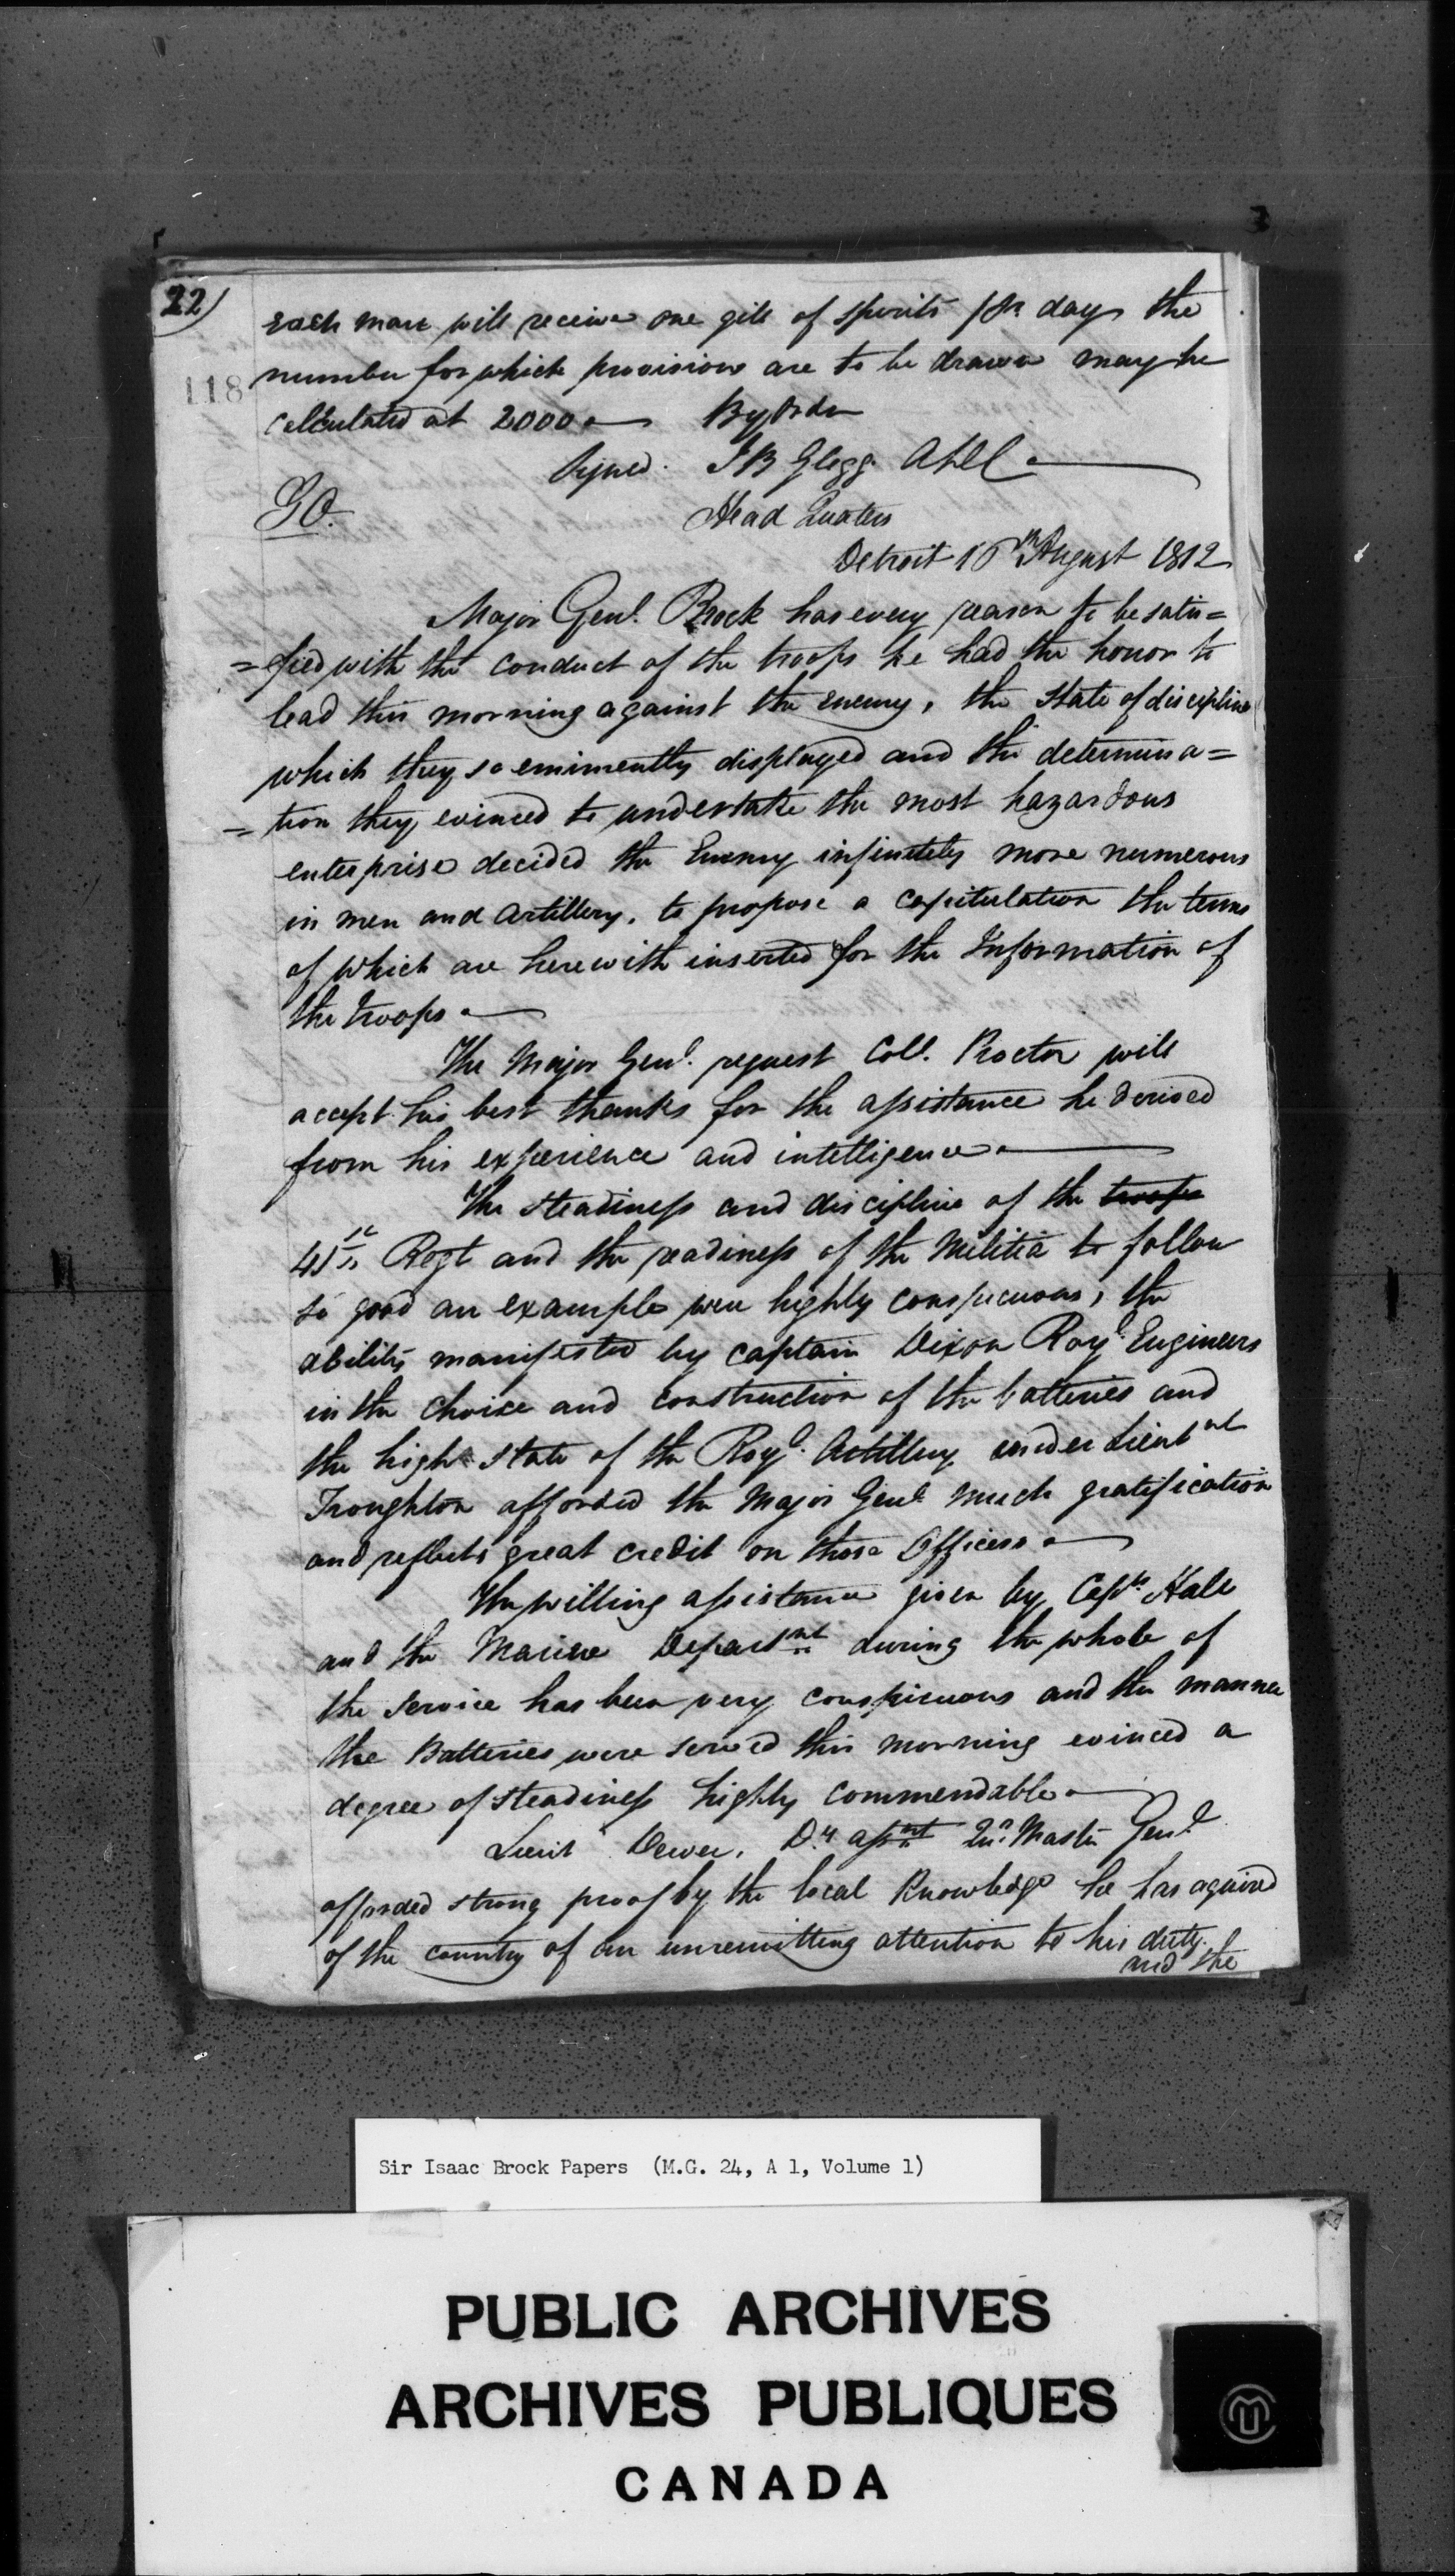 22)
118
each man will receive one gill of spirits pr day the
number for which provisions are to be drawn may be
calculated at 2000 By Order
Signed. J B Glegg ADC
GO. Head Quaters
Detroit 16th August 1812
Major Genl. Brock has every reason to be satis=
=fied with the conduct of the troops he had the honor to
lead this morning against the enemy, the state of discipline
which they so eminently displayed and the determina=
=tion they evinced to undertake the most hazardous
enterprise decided the Enemy infinitely more numerous
in men and Artillery, to propose a capitulation the terms
of which are herewith inserted for the Information of
the troops
The Major Genl. request Coll. Proctor will
accept his best thanks for the assistance he derived
from his experience and intelligence
The steadiness and discipline of the troops
41st Regt and the readiness of the Militia to follow
so good an example were highly conspicuous, the
ability manifested by Captain Dixon Royl Engineers
in the choice and construction of the batteries and
the high state of the Royl. Artillery under Lieutnt
Troughton afforded the Major Genl much gratification
and reflects great credit on those Officers
The willing assistance given by Captn Hall
and the Marine Departmt during the whole of
the service has been very conspicuous and the manner
the Batteries were served this morning evinced a
degree of steadiness highly commendable
Lieut Dewer, Dy asst Qur Master Genl
afforded strong proof by the local Knowledge he has aquired
of the country of an unremitting attention to his duty.
and the
Sir Isaac Brock Papers (M.G. 24, A 1, Volume 1)
PUBLIC ARCHIVES
ARCHIVES PUBLIQUES
CANADA